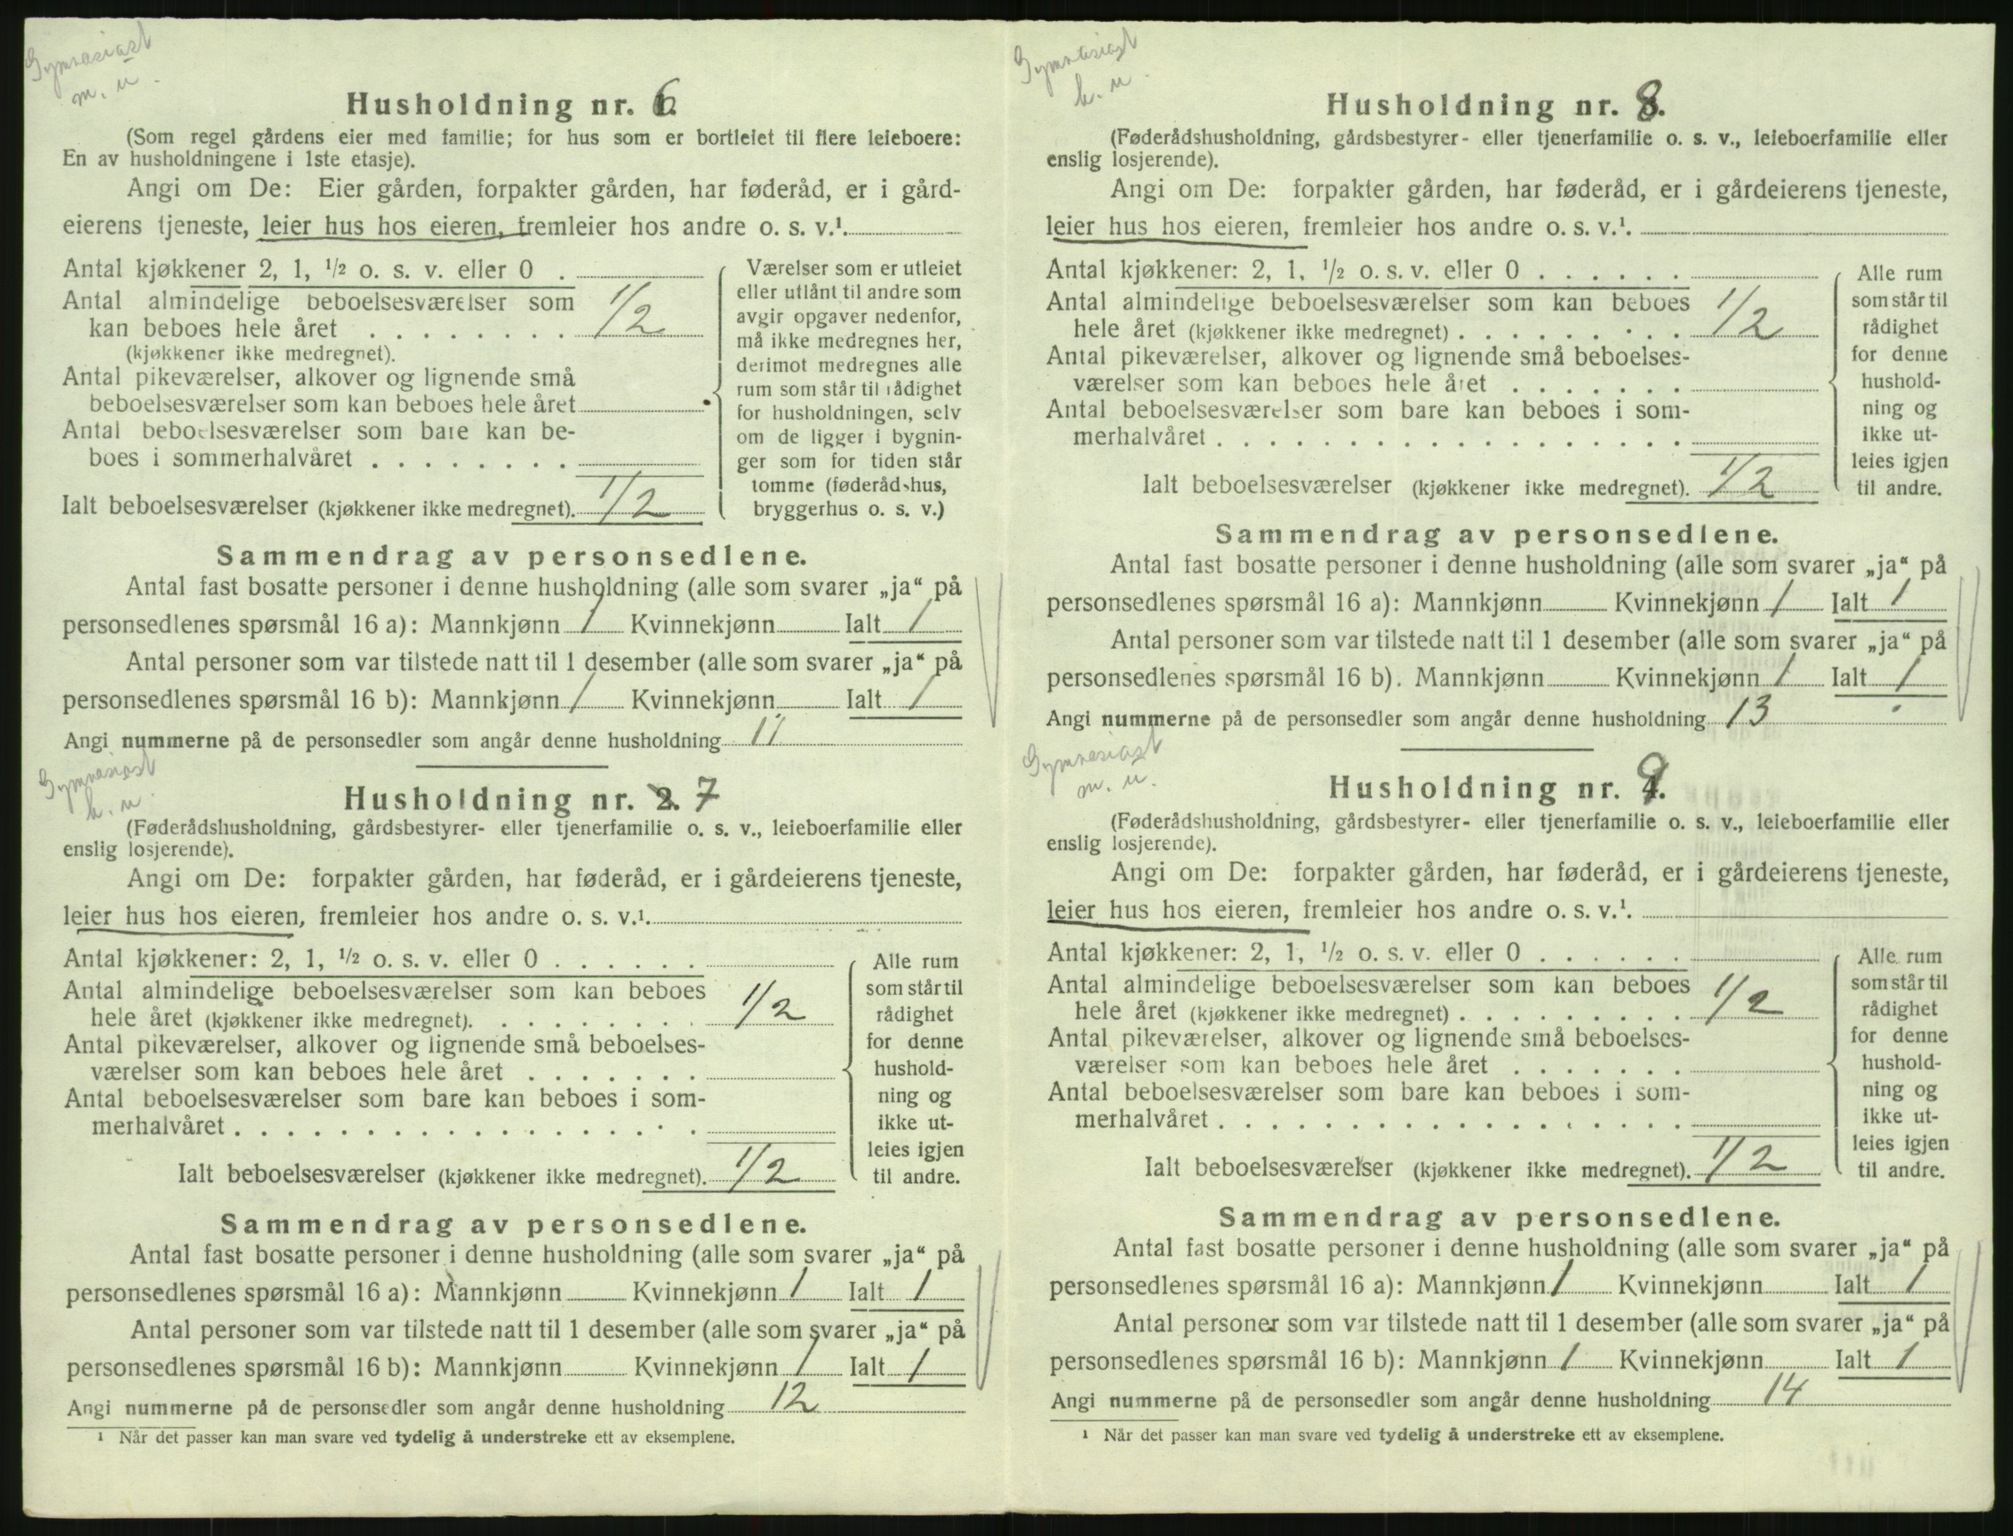 Gymnasiast
m. u.
Husholdning nr. 6
(Som regel gårdens eier med familie; for hus som er bortleiet til flere leieboere:
En av husholdningene i 1ste etasje).
Angi om De: Eier gården, forpakter gården, har føderåd, er i gård-
eierens tjeneste, leier hus hos eieren, fremleier hos andre o. s. v.¹
Antal kjøkkener 2, 1, ½ o. s. v. eller 0 .
Antal almindelige beboelsesværelser som
kan beboes hele året . . . . . . . . 1/2
(kjøkkener ikke medregnet).
Antal pikeværelser, alkover og lignende små
beboelsesværelser som kan beboes hele året
Antal beboelsesværelser som bare kan be-
boes i sommerhalvåret . . . . . . . .
Ialt beboelsesværelser (kjøkkener ikke medregnet). 1/2
Værelser som er utleiet
eller utlånt til andre som
avgir opgaver nedenfor,
må ikke medregnes her,
derimot medregnes alle
rum som står til rådighet
for husholdningen, selv
om de ligger i bygnin-
ger som for tiden står
tomme (føderådshus,
bryggerhus o. s. v.)
Sammendrag av personsedlene.
Antal fast bosatte personer i denne husholdning (alle som svarer „ja“ på
personsedlenes spørsmål 16 a): Mannkjønn 1 Kvinnekjønn Ialt 1
Antal personer som var tilstede natt til 1 desember (alle som svarer „ja“ på
personsedlenes spørsmål 16 b): Mannkjønn 1 Kvinnekjønn Ialt 1
Angi nummerne på de personsedler som angår denne husholdning 11
Gymnasiast
k. u.
Husholdning nr. 2. 7
(Føderådshusholdning, gårdsbestyrer- eller tjenerfamilie o. s. v., leieboerfamilie eller
enslig losjerende).
Angi om De: forpakter gården, har føderåd, er i gårdeierens tjeneste,
leier hus hos eieren, fremleier hos andre o. s. v.¹
Antal kjøkkener: 2, 1, ½ o. s. v. eller 0 . . . . . .
Antal almindelige beboelsesværelser som kan beboes
hele året (kjøkkener ikke medregnet). . . . . . . . . 1/2
Antal pikeværelser, alkover og lignende små beboelses-
værelser som kan beboes hele året . . . . . . .
Antal beboelsesværelser som bare kan beboes i som-
merhalvåret . . . . . . . . . . . . . . . . . .
Ialt beboelsesværelser (kjøkkener ikke medregnet). 1/2
Alle rum
som står til
rådighet
for denne
hushold-
ning og
ikke ut-
leies igjen
til andre.
Sammendrag av personsedlene.
Antal fast bosatte personer i denne husholdning (alle som svarer „ja“ på
personsedlenes spørsmål 16 a): Mannkjønn Kvinnekjønn 1 Ialt 1
Antal personer som var tilstede natt til 1 desember (alle som svarer „ja“ på
personsedlenes spørsmål 16 b): Mannkjønn Kvinnekjønn 1 Ialt 1
Angi nummerne på de personsedler som angår denne husholdning 12
¹ Når det passer kan man svare ved tydelig å understreke ett av eksemplene.
Gymnasiast
k. u.
Husholdning nr. 8.
(Føderådshusholdning, gårdsbestyrer- eller tjenerfamilie o. s. v., leieboerfamilie eller
enslig losjerende).
Angi om De: forpakter gården, har føderåd, er i gårdeierens tjeneste,
leier hus hos eieren, fremleier hos andre o. s. v.¹
Antal kjøkkener: 2, 1, ½ o. s. v. eller 0 . . . . . .
Antal almindelige beboelsesværelser som kan beboes
hele året (kjøkkener ikke medregnet) . . . . . . . . . 1/2
Antal pikeværelser, alkover og lignende små beboelses-
værelser som kan beboes hele året . . . . . . .
Antal beboelsesværelser som bare kan beboes i som-
merhalvåret . . . . . . . . . . . . . . . . . .
Ialt beboelsesværelser (kjøkkener ikke medregnet). 1/2
Alle rum
som står til
rådighet
for denne
hushold-
ning og
ikke ut-
leies igjen
til andre.
Sammendrag av personsedlene.
Antal fast bosatte personer i denne husholdning (alle som svarer „ja“ på
personsedlenes spørsmål 16 a): Mannkjønn Kvinnekjønn 1 Ialt 1
Antal personer som var tilstede natt til 1 desember (alle som svarer „ja“ på
personsedlenes spørsmål 16 b). Mannkjønn Kvinnekjønn 1 Ialt 1
Angi nummerne på de personsedler som angår denne husholdning 13
Gymnasiast
m. u.
Husholdning nr. 9.
(Føderådshusholdning, gårdsbestyrer- eller tjenerfamilie o. s. v., leieboerfamilie eller
enslig losjerende).
Angi om De: forpakter gården, har føderåd, er i gårdeierens tjeneste,
leier hus hos eieren, fremleier hos andre o. s. v.¹
Antal kjøkkener: 2, 1, ½ o. s. v. eller 0 . . . . . .
Antal almindelige beboelsesværelser som kan beboes
hele året (kjøkkener ikke medregnet) . . . . . . . . . 1/2
Antal pikeværelser, alkover og lignende små beboelses-
værelser som kan beboes hele året . . . . . . .
Antal beboelsesværelser som bare kan beboes i som-
merhalvåret . . . . . . . . . . . . . . . . . .
Ialt beboelsesværelser (kjøkkener ikke medregnet). 1/2
Alle rum
som står til
rådighet
for denne
hushold-
ning og
ikke ut-
leies igjen
til andre.
Sammendrag av personsedlene.
Antal fast bosatte personer i denne husholdning (alle som svarer „ja“ på
personsedlenes spørsmål 16 a): Mannkjønn 1 Kvinnekjønn Ialt 1
Antal personer som var tilstede natt til 1 desember (alle som svarer „ja“ på
personsedlenes spørsmål 16 b): Mannkjønn 1 Kvinnekjønn Ialt 1
Angi nummerne på de personsedler som angår denne husholdning 14
¹ Når det passer kan man svare ved tydelig å understreke ett av eksemplene.